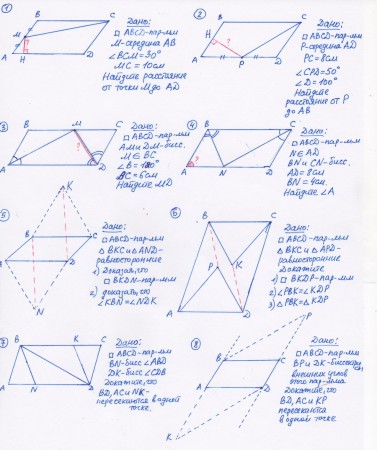 ①
B
C
M
A
H
D
?
Дано:
▱ ABCD-пар-мм
M-середина AB
∠BCM=30°
MC = 10см
Найдите расстояние
от точки M до AD
②
B
C
H
?
A
P
D
Дано:
▱ ABCD-пар-мм
P-середина AD
PC=8см
∠CPD=50°
∠D=100°
Найдите
расстояние от P
до AB
③
B
M
C
A
D
Дано:
▱ ABCD-пар-мм
AM и DM-бисс.
M∈BC
BC=6см
Найдите MD
④
B
C
?
A
N
D
Дано:
▱ ABCD-пар-мм
N∈AD
BN и CN-бисс.
AD=8см
BN=4см.
Найдите ∠A
⑤
K
B
C
A
D
N
Дано:
▱ ABCD-пар-мм
△BKC и △AND-
равносторонние
1) Доказать, что
▱ BKDN-пар-мм
2) доказать, что
∠KBN=∠NDK
⑥
B
C
P
K
A
D
Дано:
▱ ABCD-пар-мм
△BKC и △APD-
равносторонние
Докажите
1) ▱ BKDP-пар-мм
2) ∠PBK=∠KDP
3) △PBK=△KDP
⑦
B
K
C
A
N
D
Дано:
▱ ABCD-пар-мм
BN-бисс ∠ABD
DK-бисс ∠CDB
Докажите, что
BD, AC и NK-
пересекаются в одной
точке.
⑧
P
B
C
A
D
K
Дано:
▱ ABCD-пар-мм
BP и DK-биссектрисы
внешних углов
этого пар-мма
Докажите, что
BD, AC и KP
пересекаются
в одной точке.